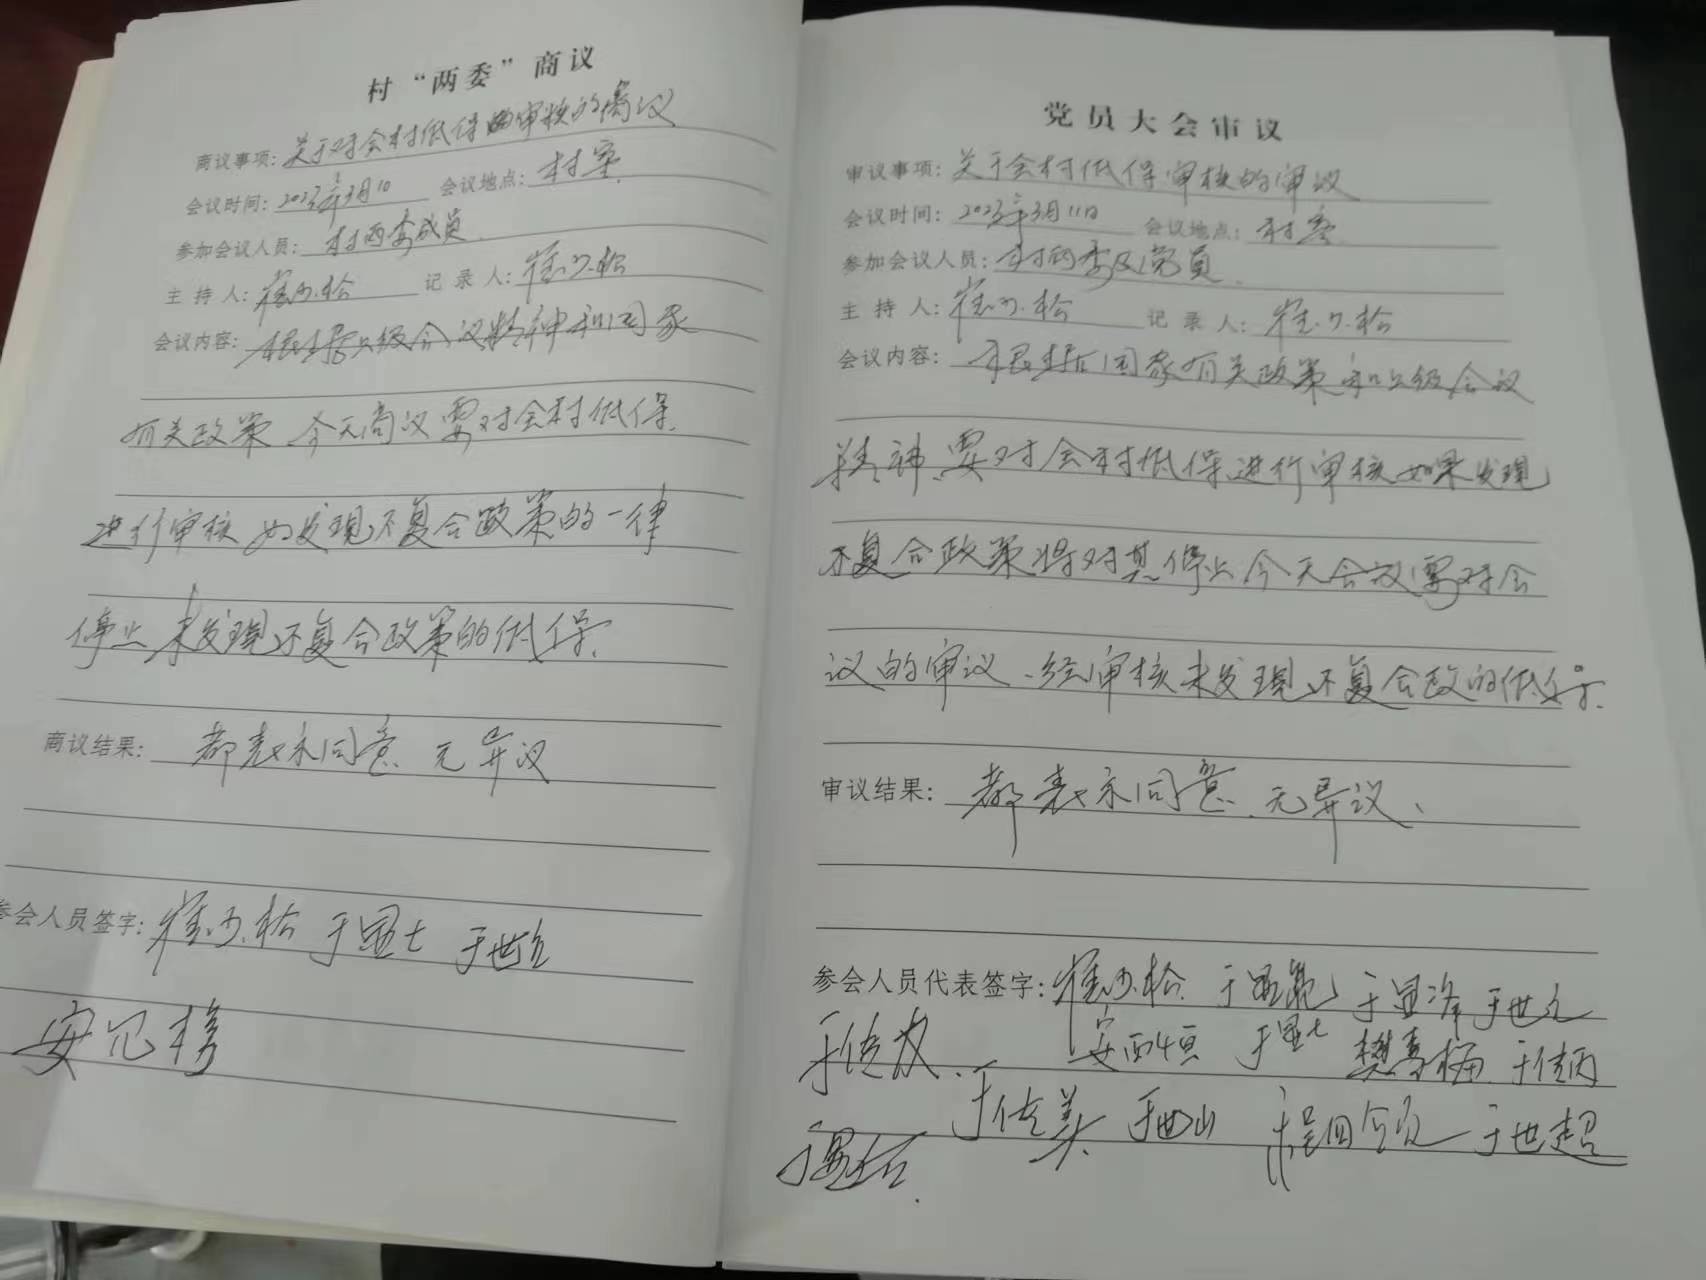 村“两委”商议
商议事项：关于对会村低保的审核的商议
会议时间：2023年3月10 会议地点：村室
参加会议人员：村两委成员
主持人：崔 松 记录人：崔 松
会议内容：根据上级会议精神和国家
有关政策 今天商议要对会村低保.
进行审核 如发现不复合政策的一律
停止 未发现不复合政策的低保.
商议结果：都表示同意 无异议
参会人员签字：崔 松 于显七 于世立
安 移
党员大会审议
审议事项：关于会村低保审核的审议
会议时间：2023年3月11日 会议地点：村室
参加会议人员：村两委及党员
主持人：崔 松 记录人：崔 松
会议内容：根据国家有关政策和上级会议
精神.要对会村低保进行审核如果发现
不复合政策将对其停止 今天会议要对会
议的审议、经审核未发现不复合政的低保.
审议结果：都表示同意.无异议、
参会人员代表签字：崔 松 于显 于显泽 于世立
于佳友. 安西恒 于显七 樊喜梅 于佳丙
于佳美 于世山 程四 于世超